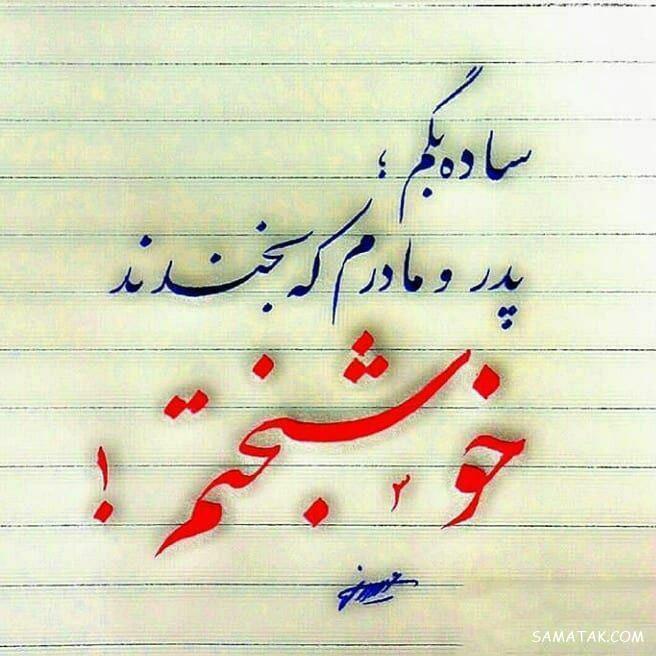 ساده بگم ؛
پدر و مادرم که بخندند
خوشبختم !
SAMATAK.COM